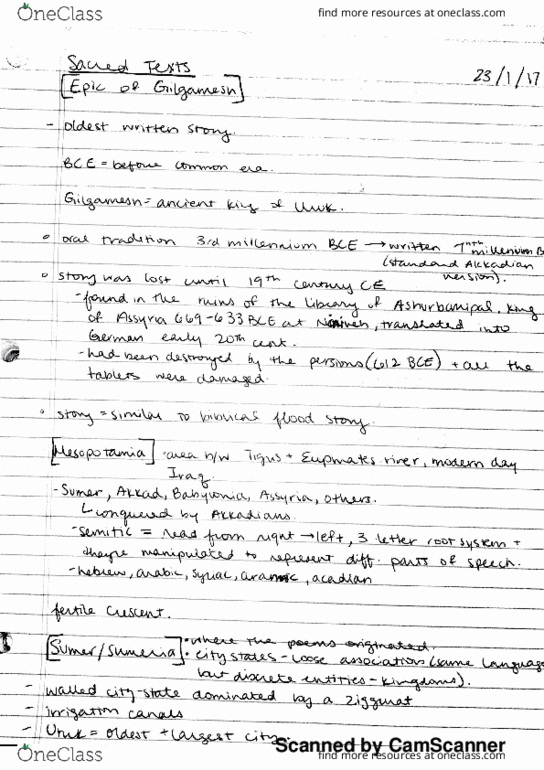 OneClass
find more resources at oneclass.com
Sacred Texts
23/1/17
Epic of Gilgamesh
- oldest written story
BCE = before common era.
Gilgamesh = ancient king of Uruk.
oral tradition 3rd millennium BCE → written 7nth millenium B
(standard Akkadian
version).
story was lost until 19th century CE
- found in the ruins of the library of Ashurbanipal, king
of Assyria 669-633 BCE at Nineveh, translated into
German early 20th cent.
- had been destroyed by the persions (612 BCE) + all the
tablets were damaged.
story = similar to biblical flood story.
[Mesopotamia] - area b/w Tigus + Euphrates river, modern day
Iraq.
- Sumer, Akkad, Babylonia, Assyria, others.
conquered by Akkadians.
- semitic = read from right → left, 3 letter root system +
theyre manipulated to represent diff. parts of speech.
- hebrew, arabic, syriac, aramaic, acadian
fertile crescent.
[Sumer/Sumeria] • where the poems originated.
• city states - loose association (same language
but discrete entities - kingdoms).
- walled city-state dominated by a ziggurat
- irrigation canals
- Uruk = oldest + largest city.
Scanned by CamScanner
OneClass
find more resources at oneclass.com